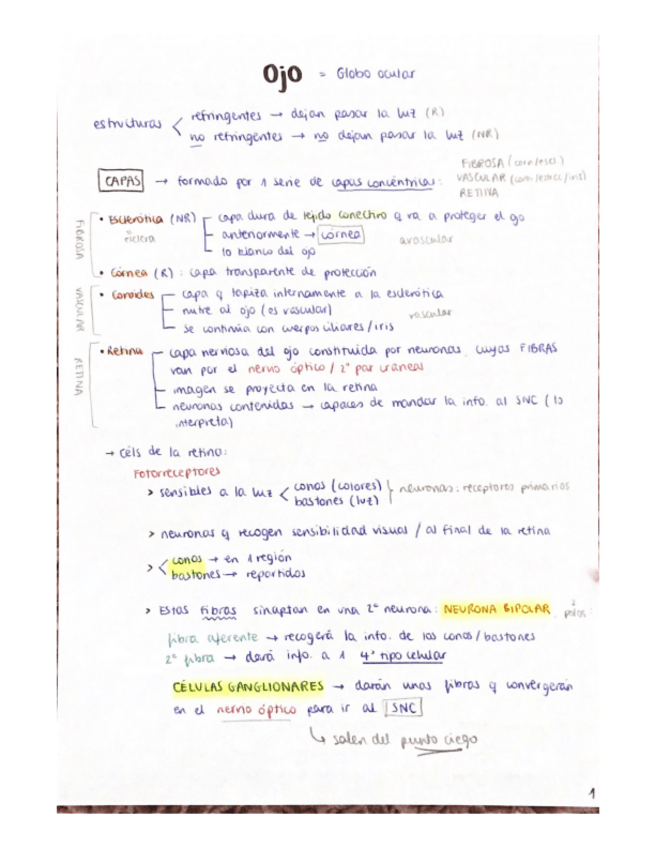 Ojo = Globo ocular
estructuras < refringentes → dejan pasar la luz (R)
no refringentes → no dejan pasar la luz (NR)
FIBROSA (corn/escl.)
CAPAS → formado por 1 serie de capas concéntricas: VASCULAR (coroides/iris)
RETINA
FIBROSA
• Esclerótica (NR) capa dura de tejido conectivo q va a proteger el ojo
esclera anteriormente → córnea avascular
lo blanco del ojo
• Córnea (R): capa transparente de protección
VASCULAR
• Coroides capa q tapiza internamente a la esclerótica
nutre al ojo (es vascular) vascular
se continúa con cuerpos ciliares/iris
RETINA
• Retina capa nerviosa del ojo constituida por neuronas, cuyas FIBRAS
van por el nervio óptico / 2º par craneal
imagen se proyecta en la retina
neuronas contenidas → capaces de mandar la info. al SNC (lo
interpreta)
→ céls de la retina:
Fotorreceptores
> sensibles a la luz < conos (colores) } neuronas: receptores primarios
bastones (luz)
> neuronas q recogen sensibilidad visual / al final de la retina
> < conos → en 1 región
bastones → repartidos
> Estas fibras sinaptan en una 2ª neurona: NEURONA BIPOLAR, 2 polos:
fibra aferente → recogerá la info. de los conos/bastones
2ª fibra → dará info. a 1 4º tipo celular
CÉLULAS GANGLIONARES → darán unas fibras q convergerán
en el nervio óptico para ir al SNC
↳ salen del punto ciego
1